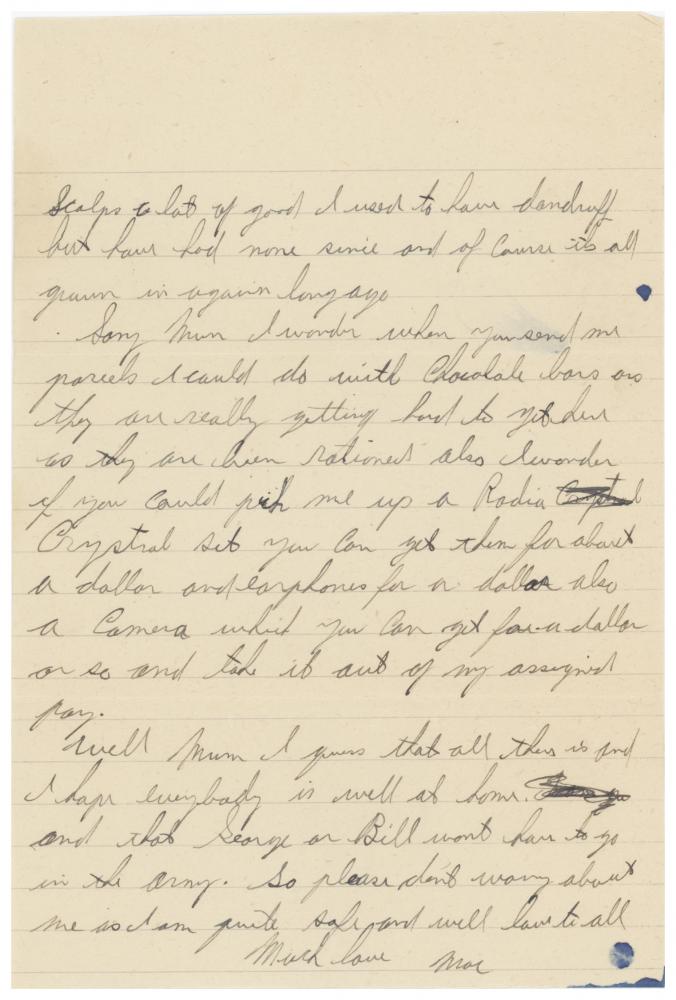 Scalps a lot of good I used to have dandruff
but have had none since and of course its all
grown in again long ago
Say Mum I wonder when you send me
parcels I could do with Chocolate bars as
they are really getting hard to get here
as they are been rationed also I wonder
if you could pick me up a Radio Crystal
Crystal set you can get them for about
a dollar and earphones for a dollar also
a Camera which you can get for a dollar
or so and take it out of my assigned
pay.
Well Mum I guess that all there is and
I hope everybody is well at home.
and that George or Bill wont have to go
in the army. So please don't worry about
me as I am quite safe and well love to all
Much love Mac